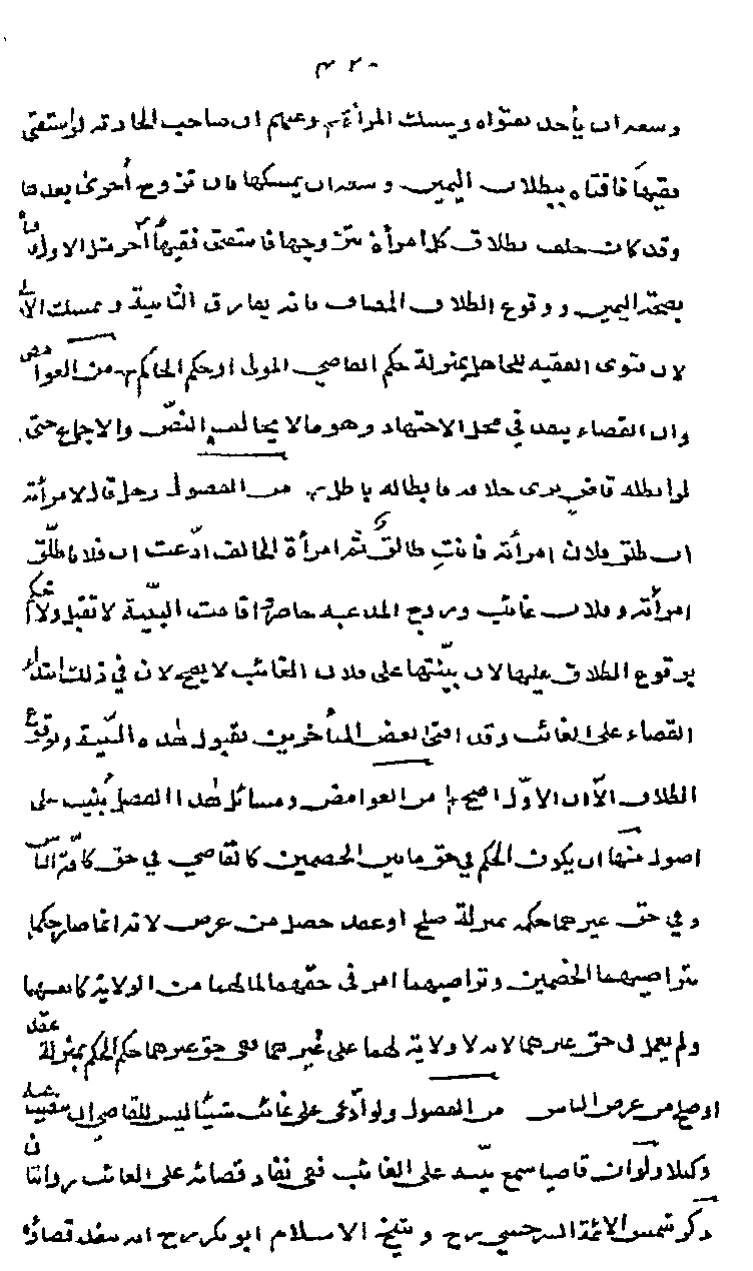 ٤٢٠
وسعه ان يأخذ بفتواه ويمسك المرأة وعنهم ان صاحب الحادثة لو استفتى
فقيها فافتاه ببطلان اليمين وسعه ان يمسكها فان تزوج أخرى بعدها
وقد كان حلف بطلاق كل امرأة يتزوجها فاستفتى فقيهاً آخر مثل الاول فأفتاه
بصحة اليمين ووقوع الطلاق المضاف فانه يفارق الثانية ويمسك الاولى
لان فتوى الفقيه للجاهل بمنزلة حكم القاضي المولى او حكم الحاكم من العوا
وان القضاء ينفذ في محل الاجتهاد وهو ما لا يخالف النصّ والاجماع حتى
لو ابطله قاضٍ يرى خلافه فابطاله باطل من الفصول رجل قال لامرأته
ان طلق فلان امرأته فانتِ طالق ثم امرأة الحالف ادّعت ان فلانا طلّق
امرأته وفلان غائب وزوج المدعية حاضر واقامت البيّنة لا تقبل ولا يحكم
بوقوع الطلاق عليها لان بيّنتها على فلان الغائب لا يصح لان في ذلك ابتداء
القضاء على الغائب وقد افتى بعض المتأخرين بقبول هذه البيّنة وبوقوع
الطلاق الاّ ان الاوّل اصح من الغوامض ومسائل هذا الفصل بُنيت على
اصول منها ان يكون الحكم في حق ما بين الخصمين كالقاضي في حق كافة الناس
وفي حق غيرهما حكمه بمنزلة صلح او عقد حصل من عرض لانه انما صار حكما
بتراضيهما الخصمين وتراضيهما امر في حقهما لما لهما من الولاية كانفسهما
ولم يعمل في حق غيرهما لانه لا ولاية لهما على غيرهما ففي حق غيرهما حكم الحكم بمنزلة عقد
او صلح من عرض الناس من الفصول ولو ادّعى على غائب شيئاً ليس للقاضي ان ينصب عنه
وكيلا ولو ان قاضيا سمع بيّنة على الغائب ففي نفاذ قضائه على الغائب روايتان
ذكر شمس الائمة السرخسي رح وشيخ الاسلام ابو بكر رح انه ينفذ قضاؤه